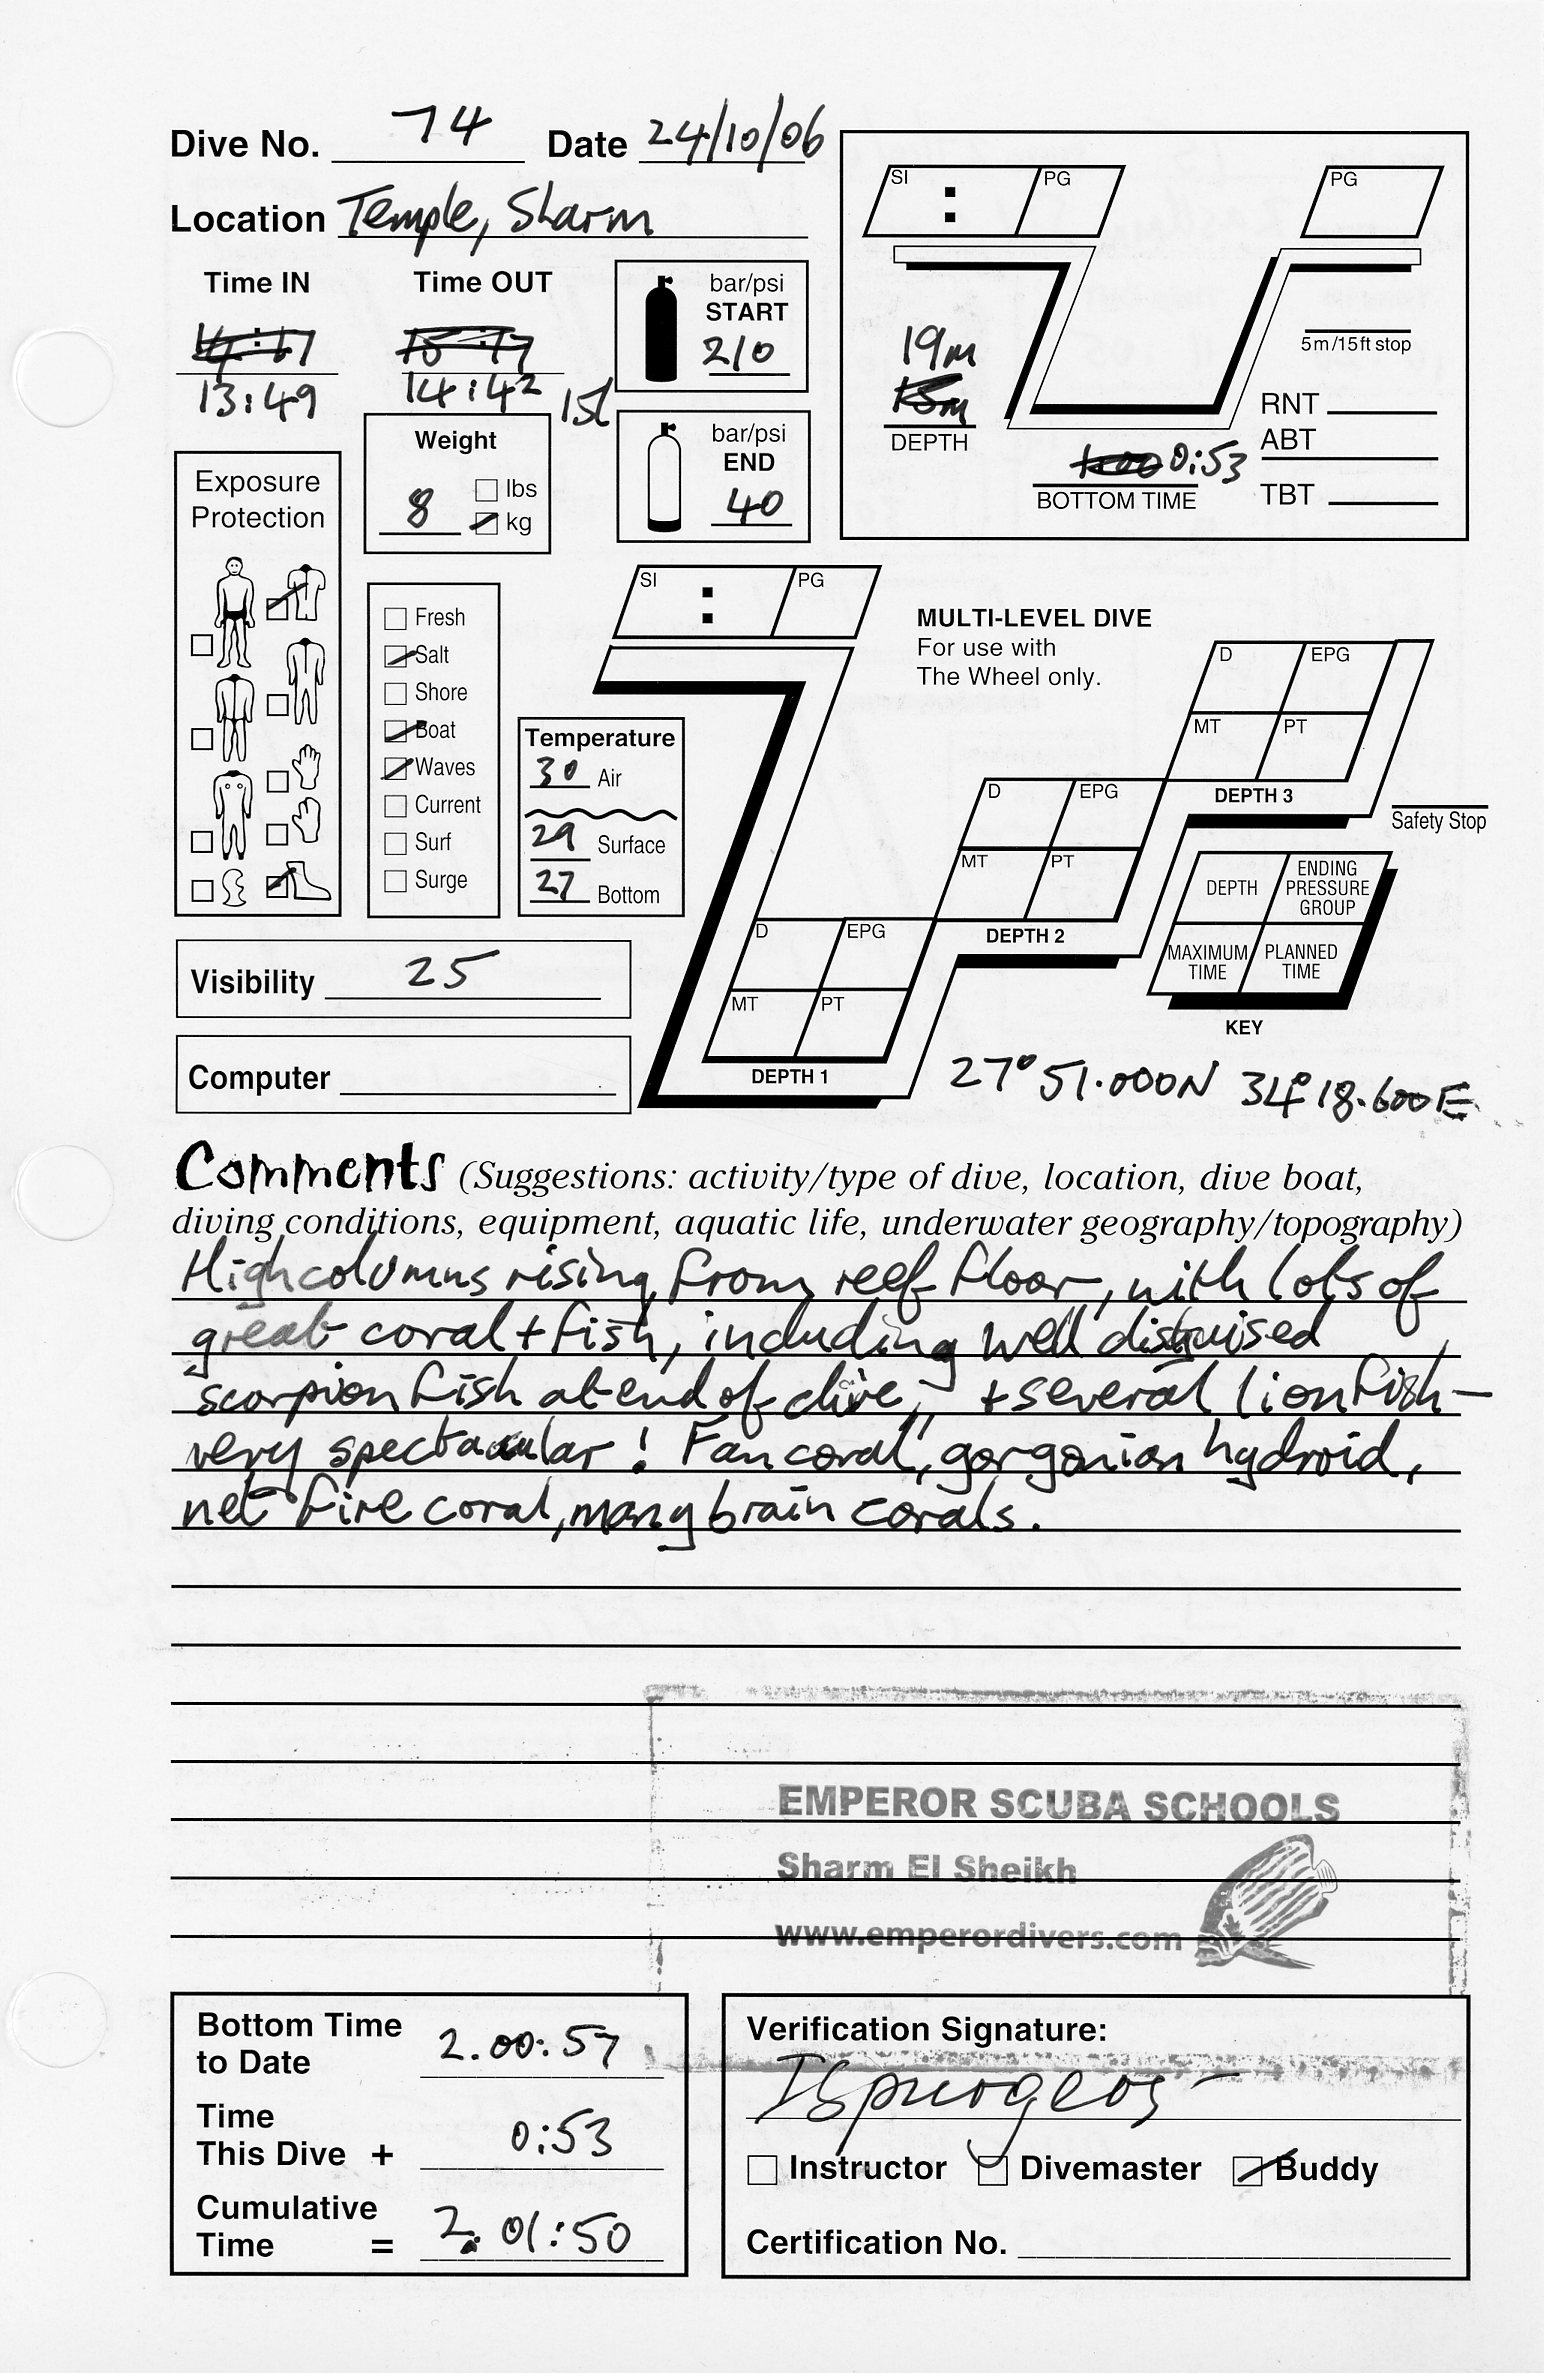 Dive No. 74 Date 24/10/06
Location Temple, Sharm
Time IN Time OUT
13:49 14:42 15l
bar/psi
START
210
bar/psi
END
40
Weight
8
lbs
kg
Exposure
Protection
Fresh
Salt
Shore
Boat
Waves
Current
Surf
Surge
Temperature
30 Air
29 Surface
27 Bottom
Visibility 25
Computer
SI : PG
PG
19m
15m
DEPTH
0:53
BOTTOM TIME
5m/15ft stop
RNT
ABT
TBT
SI : PG
MULTI-LEVEL DIVE
For use with
The Wheel only.
D EPG
MT PT
DEPTH 3
D EPG
MT PT
DEPTH 2
D EPG
MT PT
DEPTH 1
Safety Stop
DEPTH
ENDING
PRESSURE
GROUP
MAXIMUM
TIME
PLANNED
TIME
KEY
27° 51.000N 34° 18.600E
Comments (Suggestions: activity/type of dive, location, dive boat,
diving conditions, equipment, aquatic life, underwater geography/topography)
High columns rising from reef floor, with lots of
great coral + fish, including well disguised
scorpion fish at end of dive, + several lionfish –
very spectacular! Fan coral, gorgonian hydroid,
net fire coral, many brain corals.
EMPEROR SCUBA SCHOOLS
Sharm El Sheikh
www.emperordivers.com
Bottom Time
to Date 2.00:57
Time
This Dive + 0:53
Cumulative
Time = 2.01:50
Verification Signature:
Instructor Divemaster Buddy
Certification No.